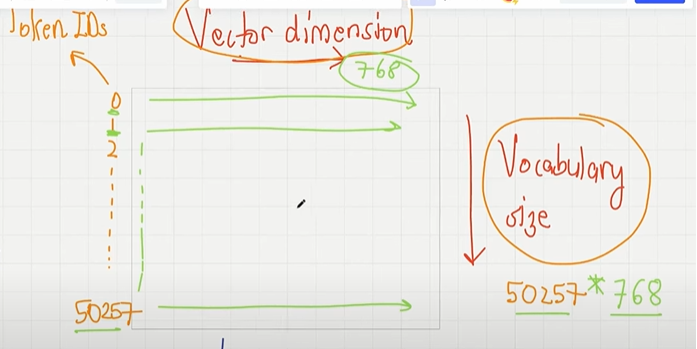 Token IDs
Vector dimension
768
0
1
2
50257
Vocabulary
size
50257*768